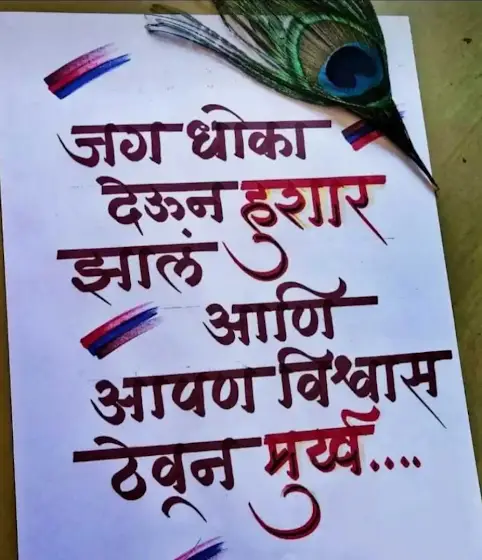 जग धोका
देऊन हुशार
झालं
आणि
आपण विश्वास
ठेवून मुर्ख....